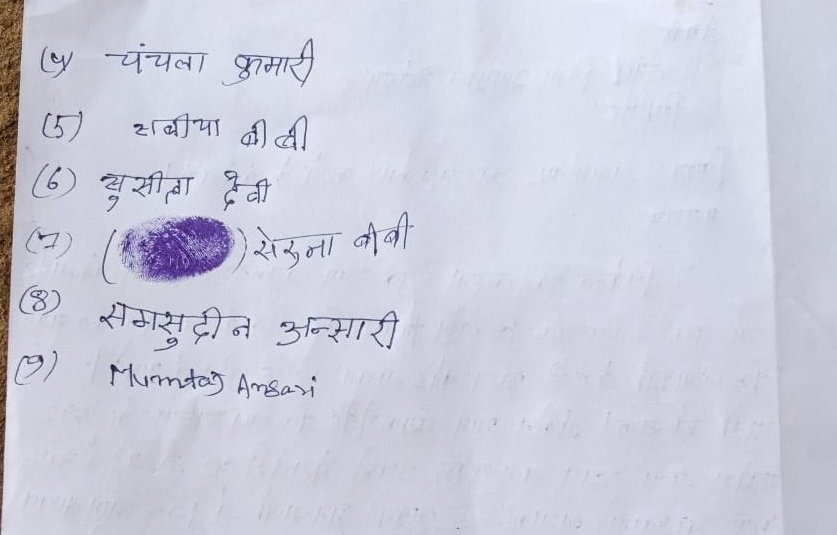 (4) चंचला कुमारी
(5) सबीया बीबी
(6) सुसीला देवी
(7) ( ) सेरुना बीबी
(8) समसुदीन अन्सारी
(9) Mumtaj Ansari